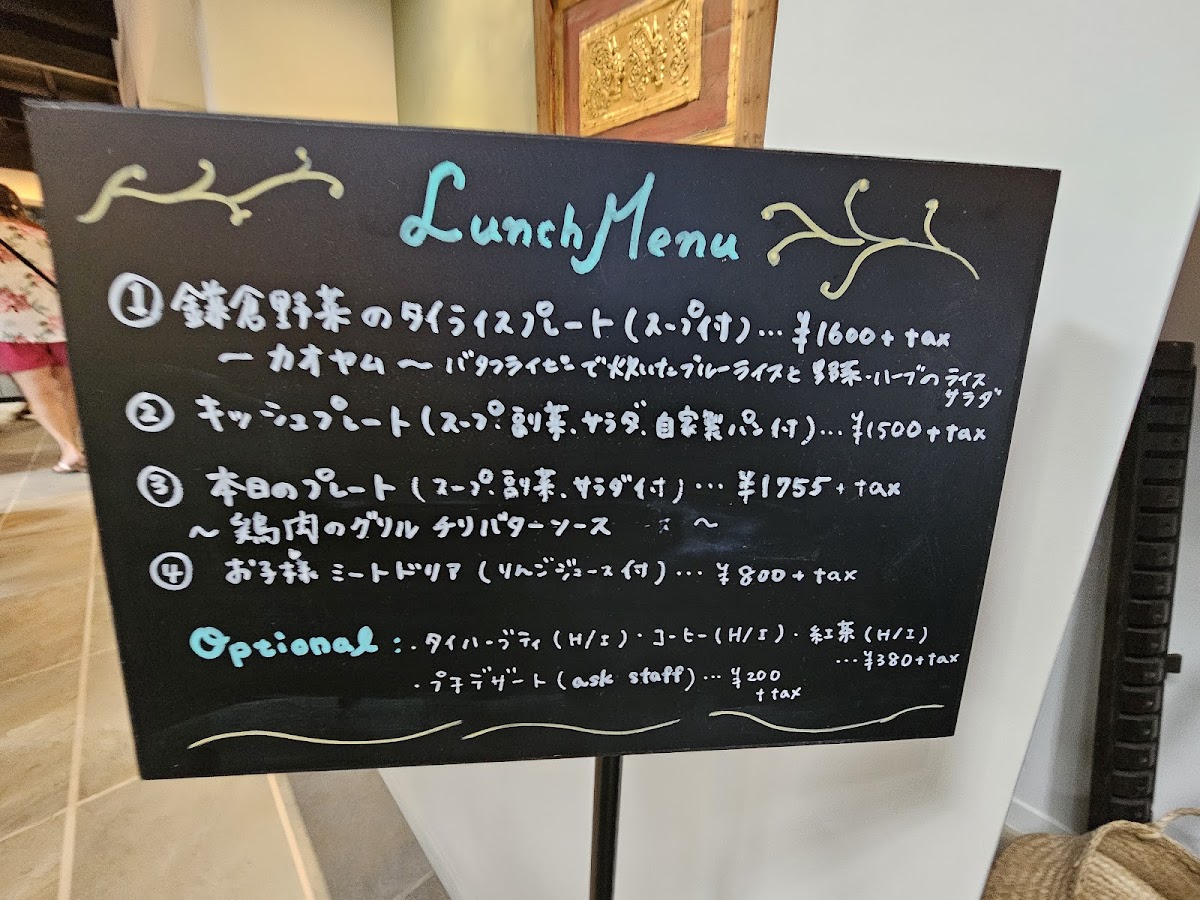 Lunch Menu
① 鎌倉野菜のタイライスプレート(スープ付)…¥1600+tax
ー カオヤム 〜 バタフライピーで炊いたブルーライスと野菜・ハーブのライス
サラダ
② キッシュプレート(スープ、副菜、サラダ、自家製パン付)…¥1500+tax
③ 本日のプレート(スープ、副菜、サラダ付)…¥1755+tax
〜 鶏肉のグリル チリバターソース 〜
④ お子様ミートドリア(りんごジュース付)…¥800+tax
Optional : ・タイハーブティ(H/I)・コーヒー(H/I)・紅茶(H/I)
…¥380+tax
・プチデザート(ask staff)…¥200
+tax